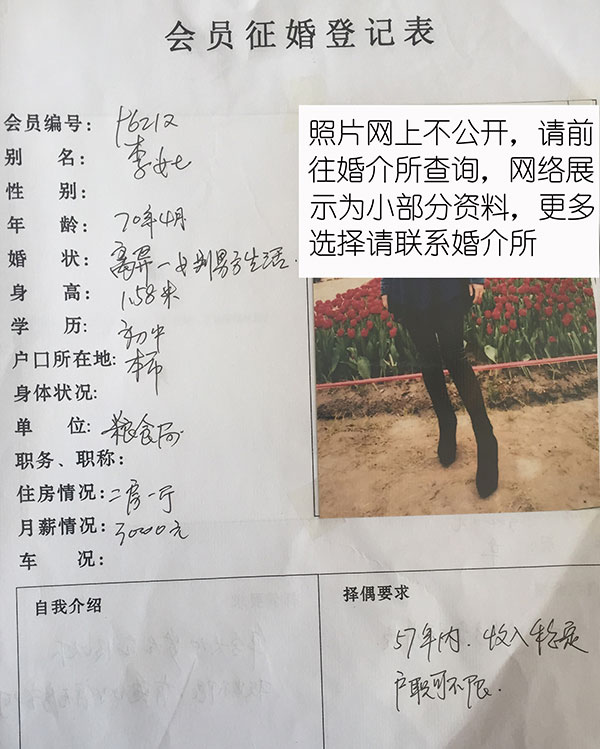 会员征婚登记表
会员编号: 16212
别 名: 李女士
性 别:
年 龄: 70年4月
婚 状: 离异一女判男方生活.
身 高: 1.58米
学 历: 初中
户口所在地: 本市
身体状况:
单 位: 粮食局
职务、职称:
住房情况: 二房一厅
月薪情况: 3000元
车 况:
照片网上不公开，请前
往婚介所查询，网络展
示为小部分资料，更多
选择请联系婚介所
自我介绍
择偶要求
57年内. 收入稳定
户职可不限.